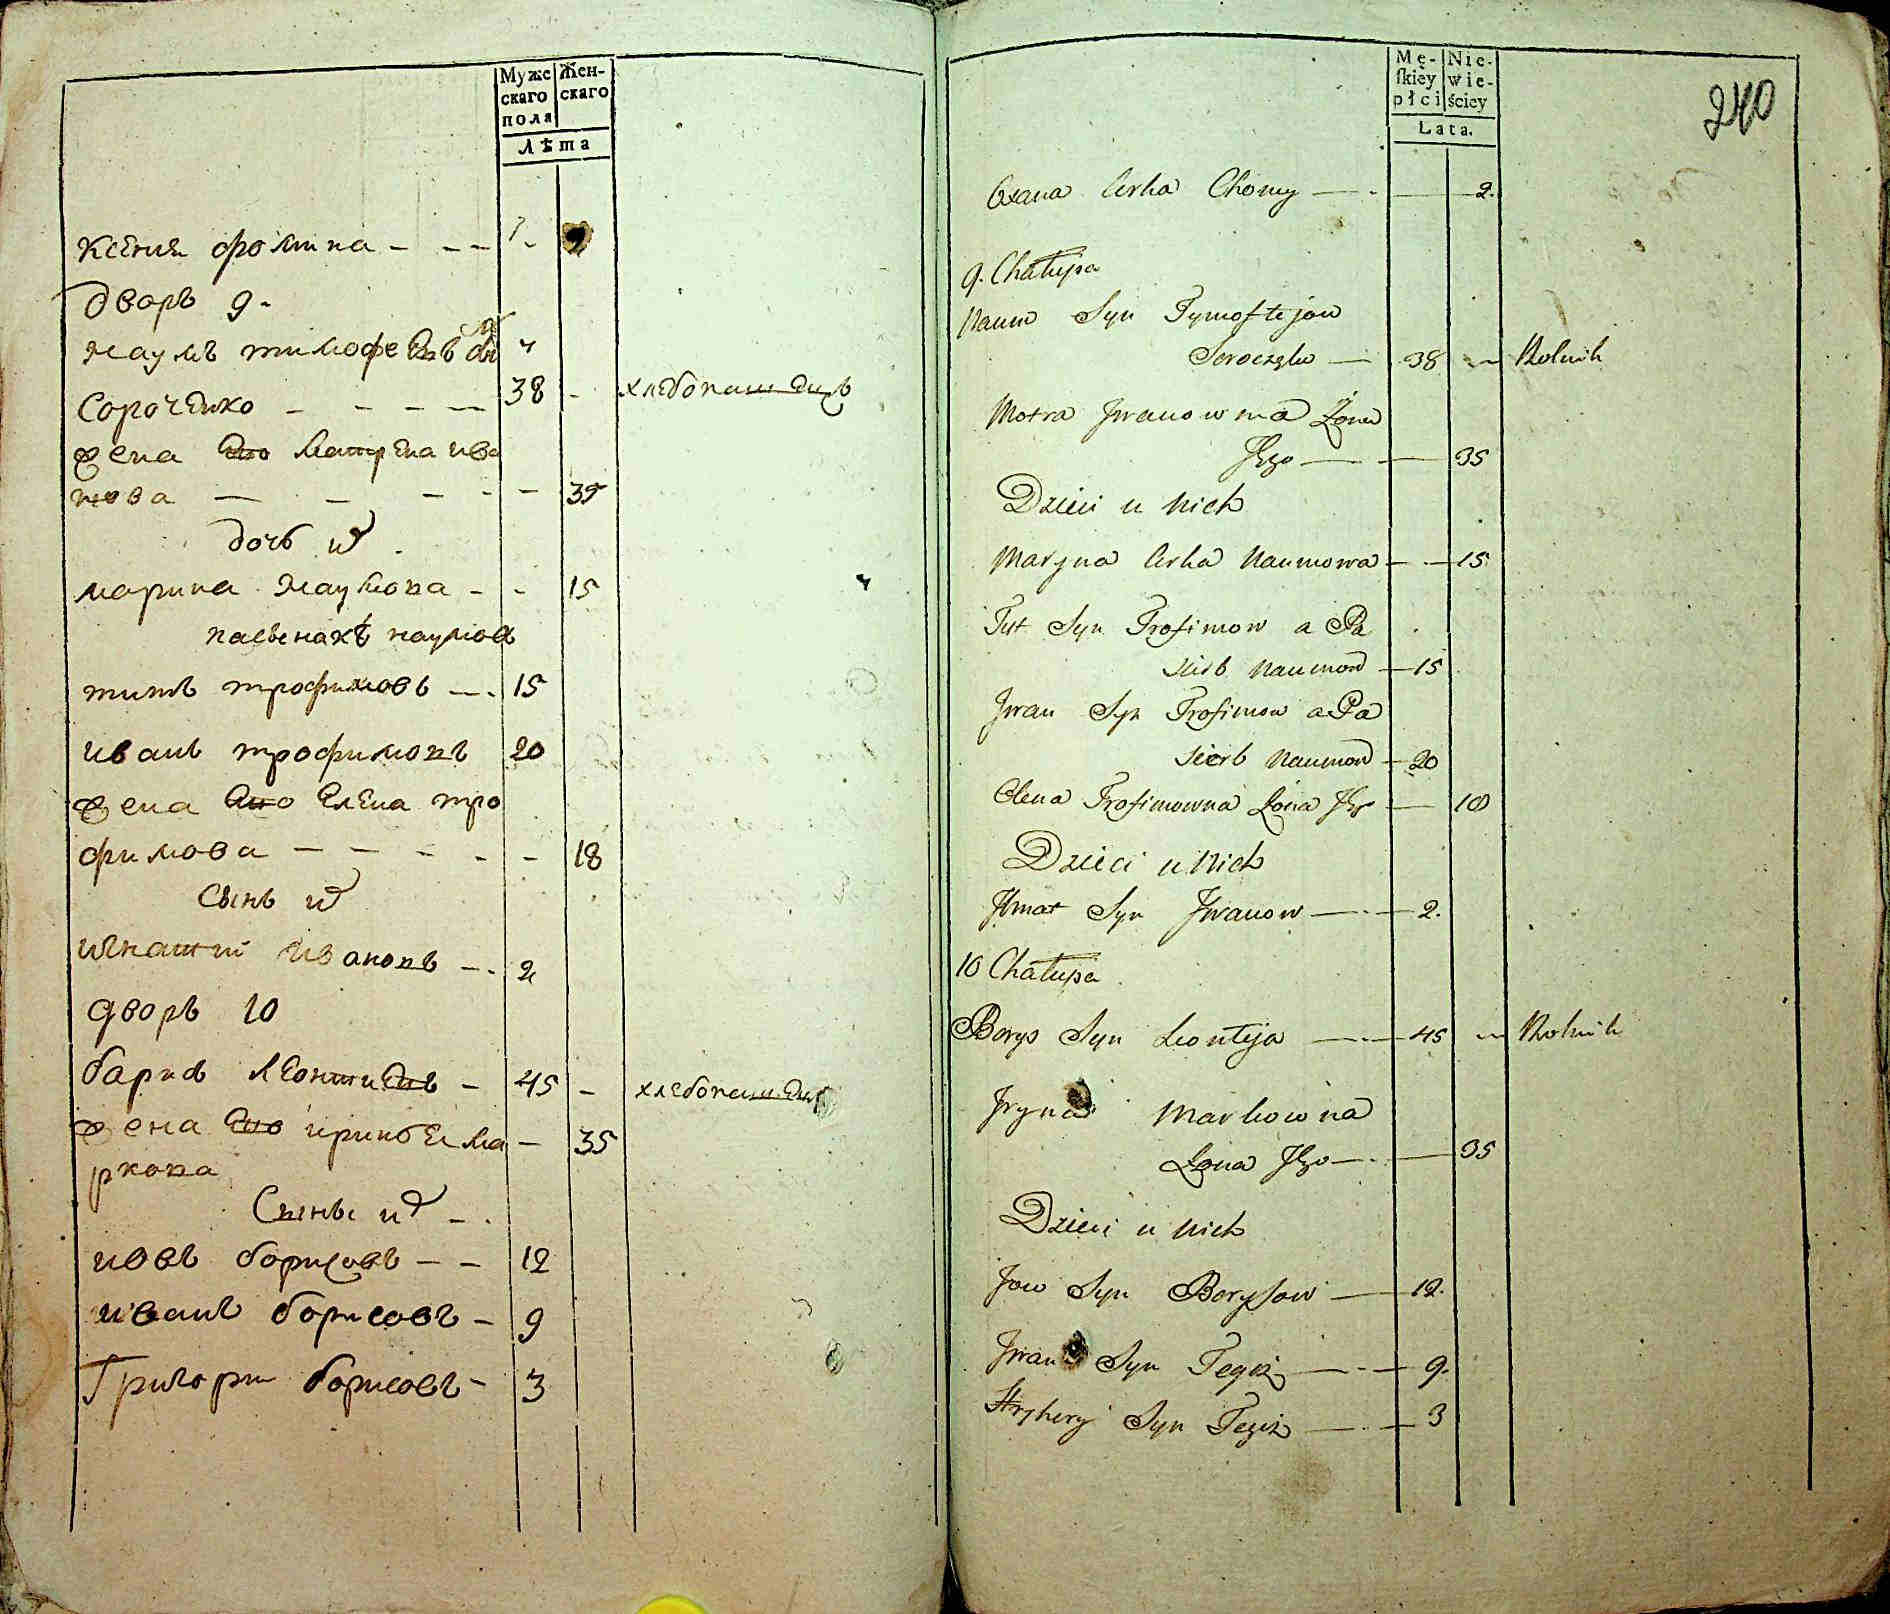 Муже
скаго
пола
Жен-
скаго
Лѣта
Ксения Фомина - - -
дворъ 9.
Наумъ тимофеевъ сынъ
Сороченко - - - - 38 - хлебопашецъ
жена его Матрена ива
нова - - - - - 35
дочь их
марина Наумова - - 15
пасынакъ наумов
титъ трофимовъ - . 15
иванъ трофимовъ 20
жена его Елена тро
фимова - - - - - 18
Сынъ их
игнатий Ивановъ - . 2
дворъ 10
барис Леонтиевъ - 45 - хлебопашецъ
жена его ирина Ма - 35
ркова
Сыны их - .
иовъ борисовъ - - 12
иванъ борисовъ - 9
Григори борисовъ - 3
Mę-
skiey
płci
Nie-
wie-
ściey
Lata.
240
Oxana Corka Chomy - 2.
9. Chałupa
Naum Syn Tymoftejow
Soroczęko - 38 - Rolnik
Motra Jwanowna Żona
Jego - - 35
Dzieci u Nich
Maryna Corka Naumowa - 15
Tyt Syn Trofimow a Pa
sierb Naumow - 15
Jwan Syn Trofimow a Pa
sierb Naumow - 20
Olena Trofimowna Żona Jego - 18
Dzieci u Nich
Jhnat Syn Jwanow - 2.
10 Chałupa
Borys Syn Leontija - 45 - Rolnik
Jryna Markowna
Żona Jego - - 35
Dzieci u Nich
Jow Syn Borysow - 12.
Jwan Syn Tegoż - 9.
Hryhory Syn Tegoż - 3